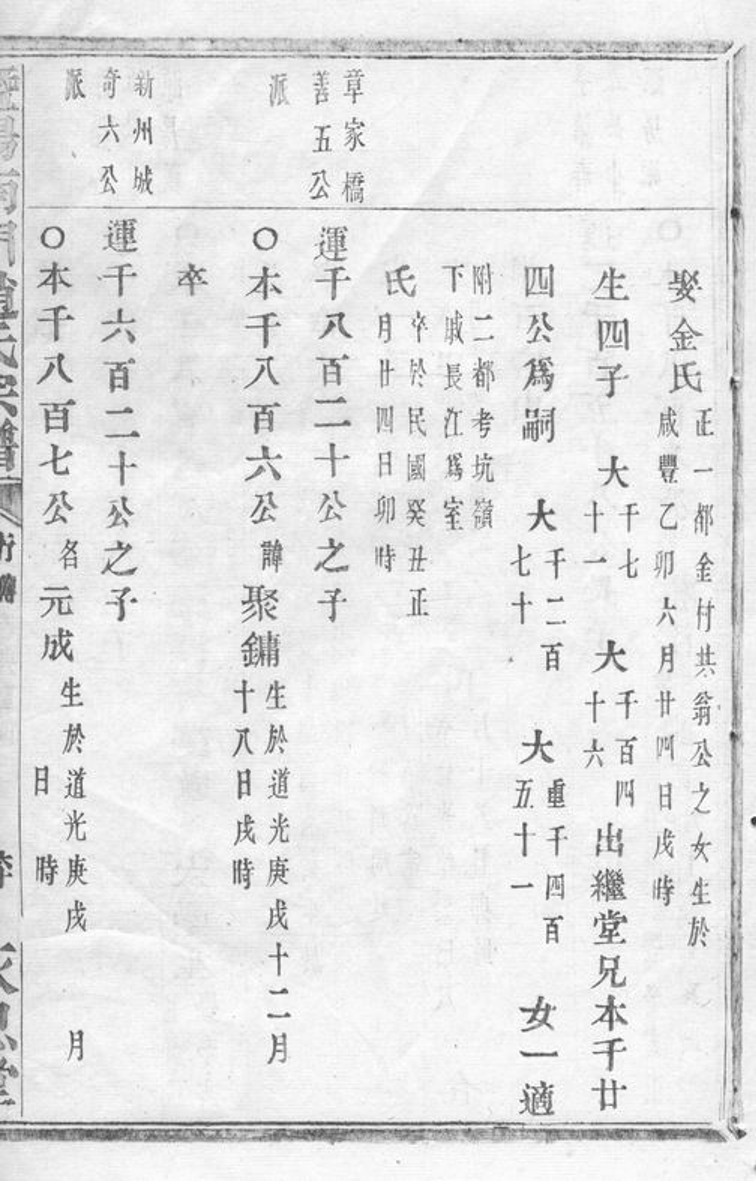 娶金氏
正一都金村共翁公之女生於
咸豐乙卯六月廿四日戌時
生四子
大
千七
十一
大
千百四
十六
出繼堂兄本千廿
四公爲嗣
大
千二百
七十
大
重千四百
五十一
女一適
附二都考坑嶺
下戚長江爲室
氏
卒於民國癸丑正
月廿四日卯時
章家橋
善五公
派
運千八百二十公之子
○本千八百六公
諱
聚鏞
生於道光庚戌十二月
十八日戌時
卒
新州城
奇六公
派
運千六百二十公之子
○本千八百七公
名
元成
生於道光庚戌 月
日 時